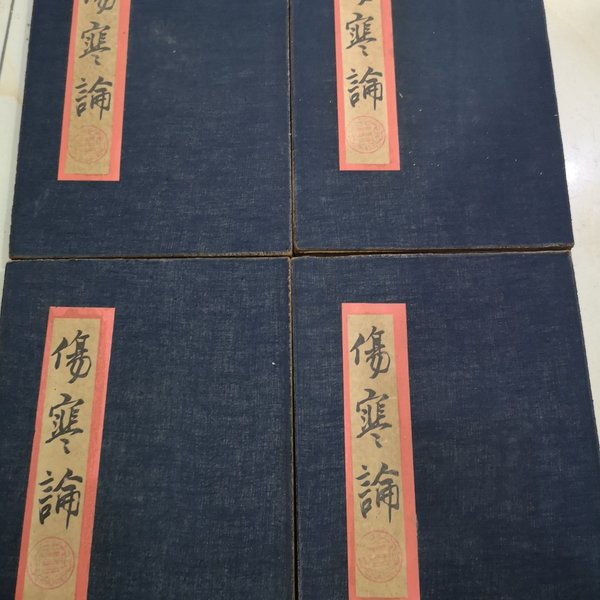 傷寒論
寒論
傷寒論
傷寒論